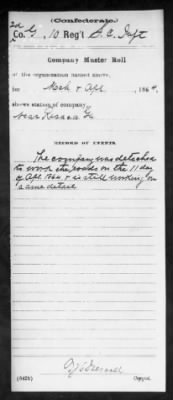 (Confederate.)
2d Co. G, 10 Reg't S. C. Inft
Company Muster Roll
of the organization named above,
for Mch & Apl, 1864.
shows station of company,
Near Ga
RECORD OF EVENTS.
The company was detached
to work the roads on the 11 day
of Apl 1864 & is still working on
same detail
(642b)
Copyist.